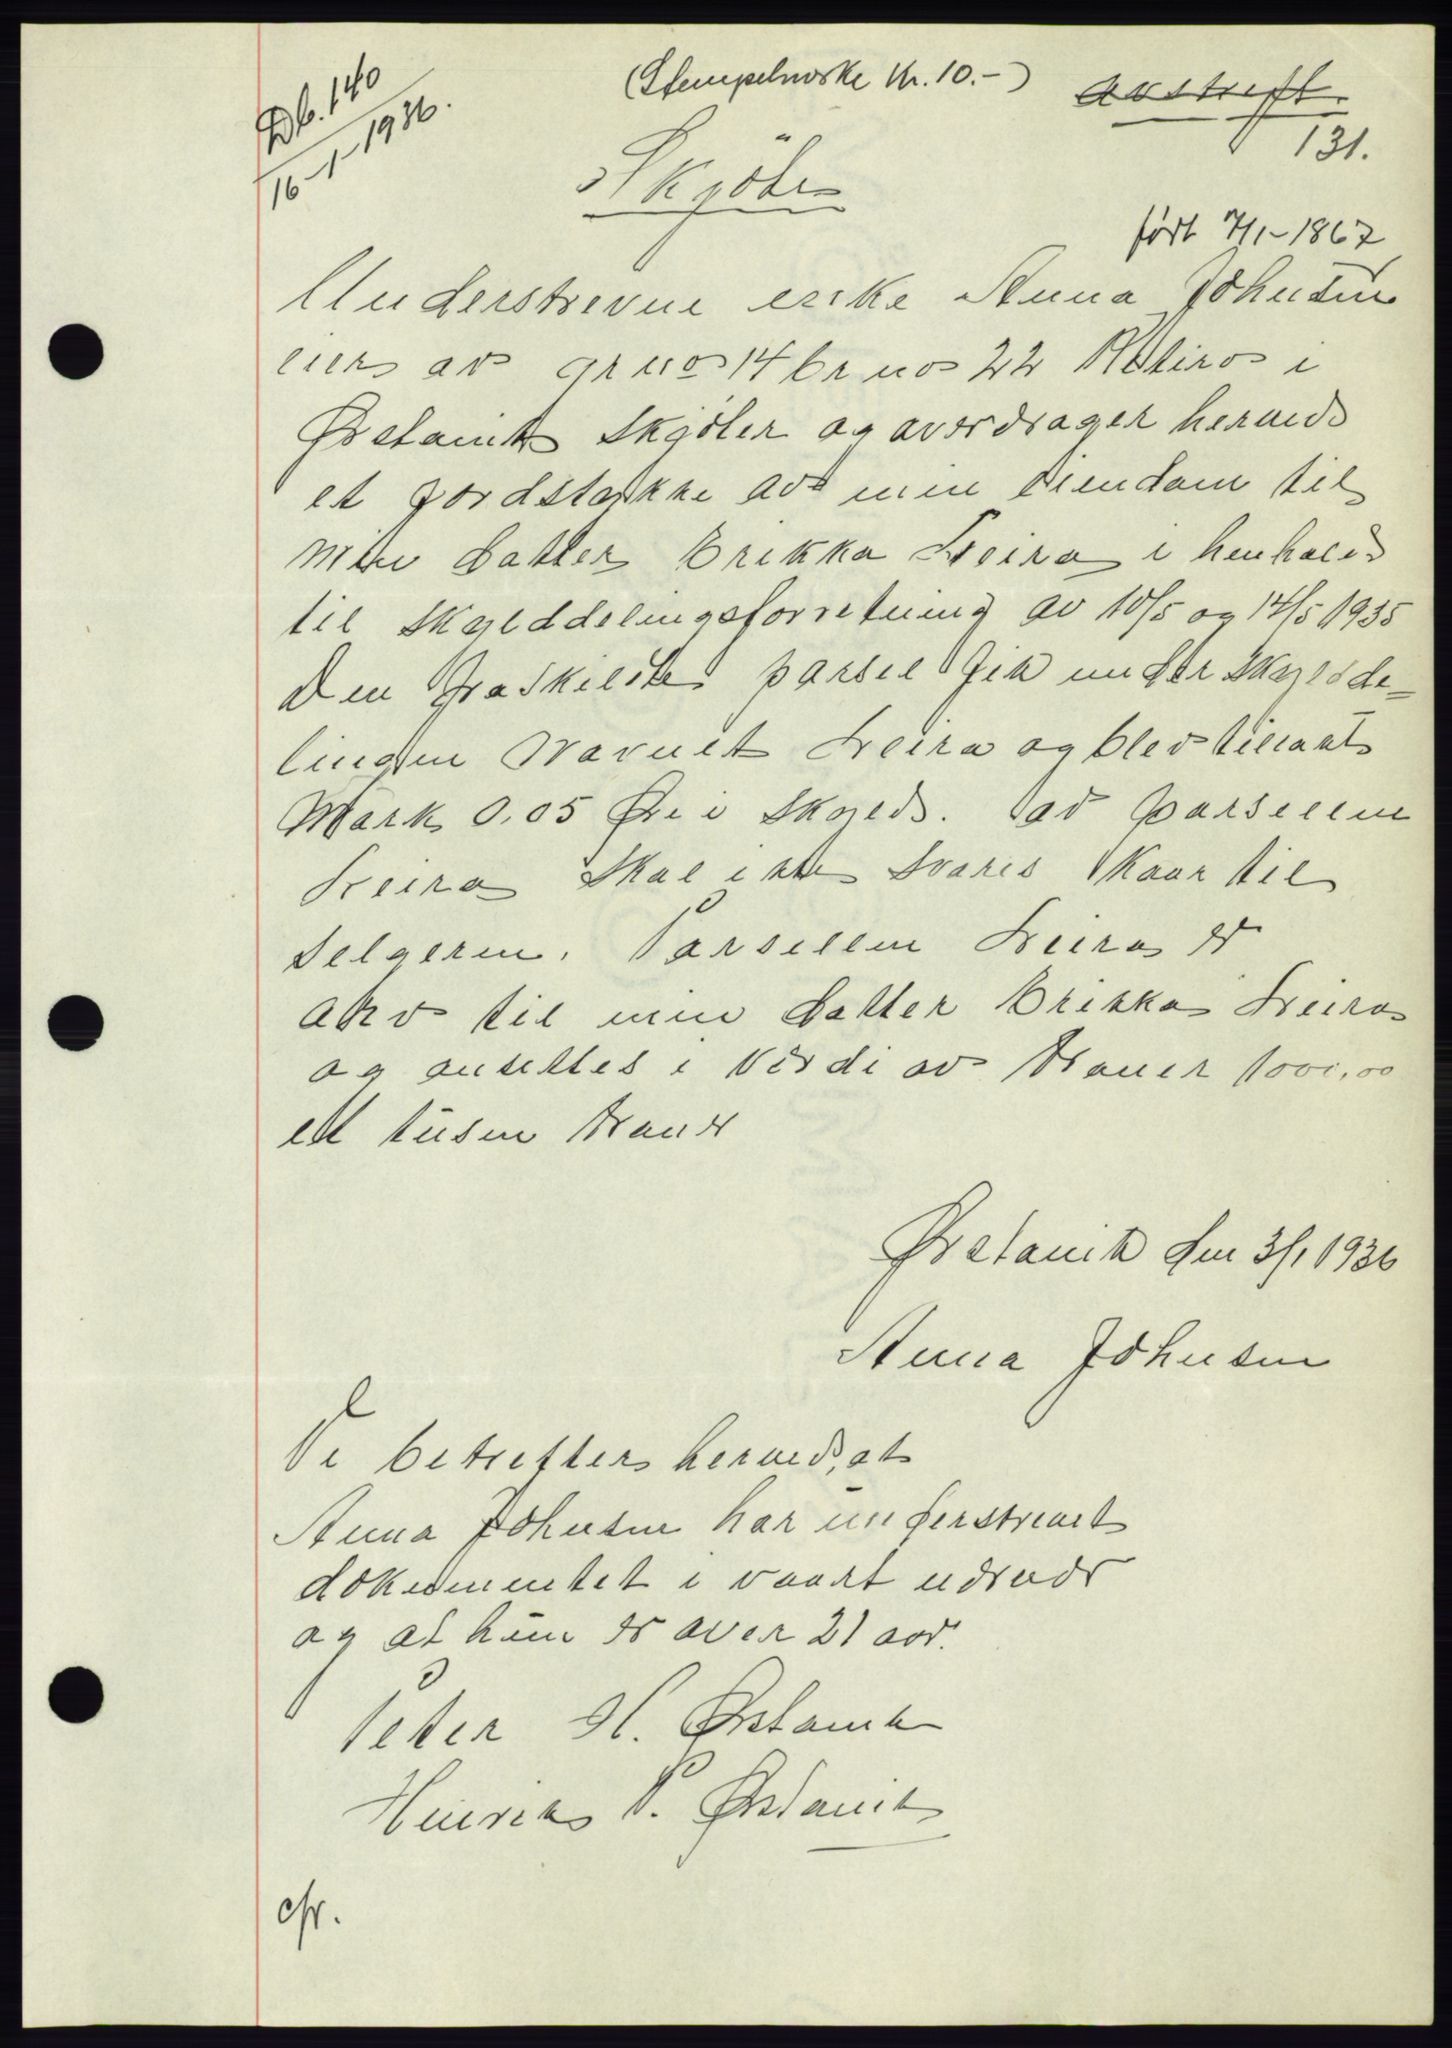 Db. 140
16-1-1936.
(Stempelmerke kr. 10.-)
avskrift.
131.
Skjöte
født 7/1-1867
Underskrevne enke Anna Johnsen
eier av gr no 14 br no 22 Retiro i
Ørstavik skjöter og averdrager herved
et jordstykke av min eiendom til
min datter Erikka Leira i henhold
til skylddelingsforretning av 10/5 og 14/5 1935
Den fraskilte parsel fik under skyldde=
lingen navnet Leira og blev tillagt
Mark 0,05 Øre i skyld. av parsellen
Leira skal ikke svares Kaar til
selgeren. Parsellen Leira er
arv til min datter Erikka Leira
og ansettes i verdi av kroner 1000,00
et tusen kroner
Ørstavik den 3/1 1936
Anna Johnsen
Vi betrefter herved, at
Anna Johnsen har underskrevet
dokumentet i vaart nærvær
og at hun er over 21 aar.
Peter H. Ørstavik
Henrik P. Ørstavik
cfr.